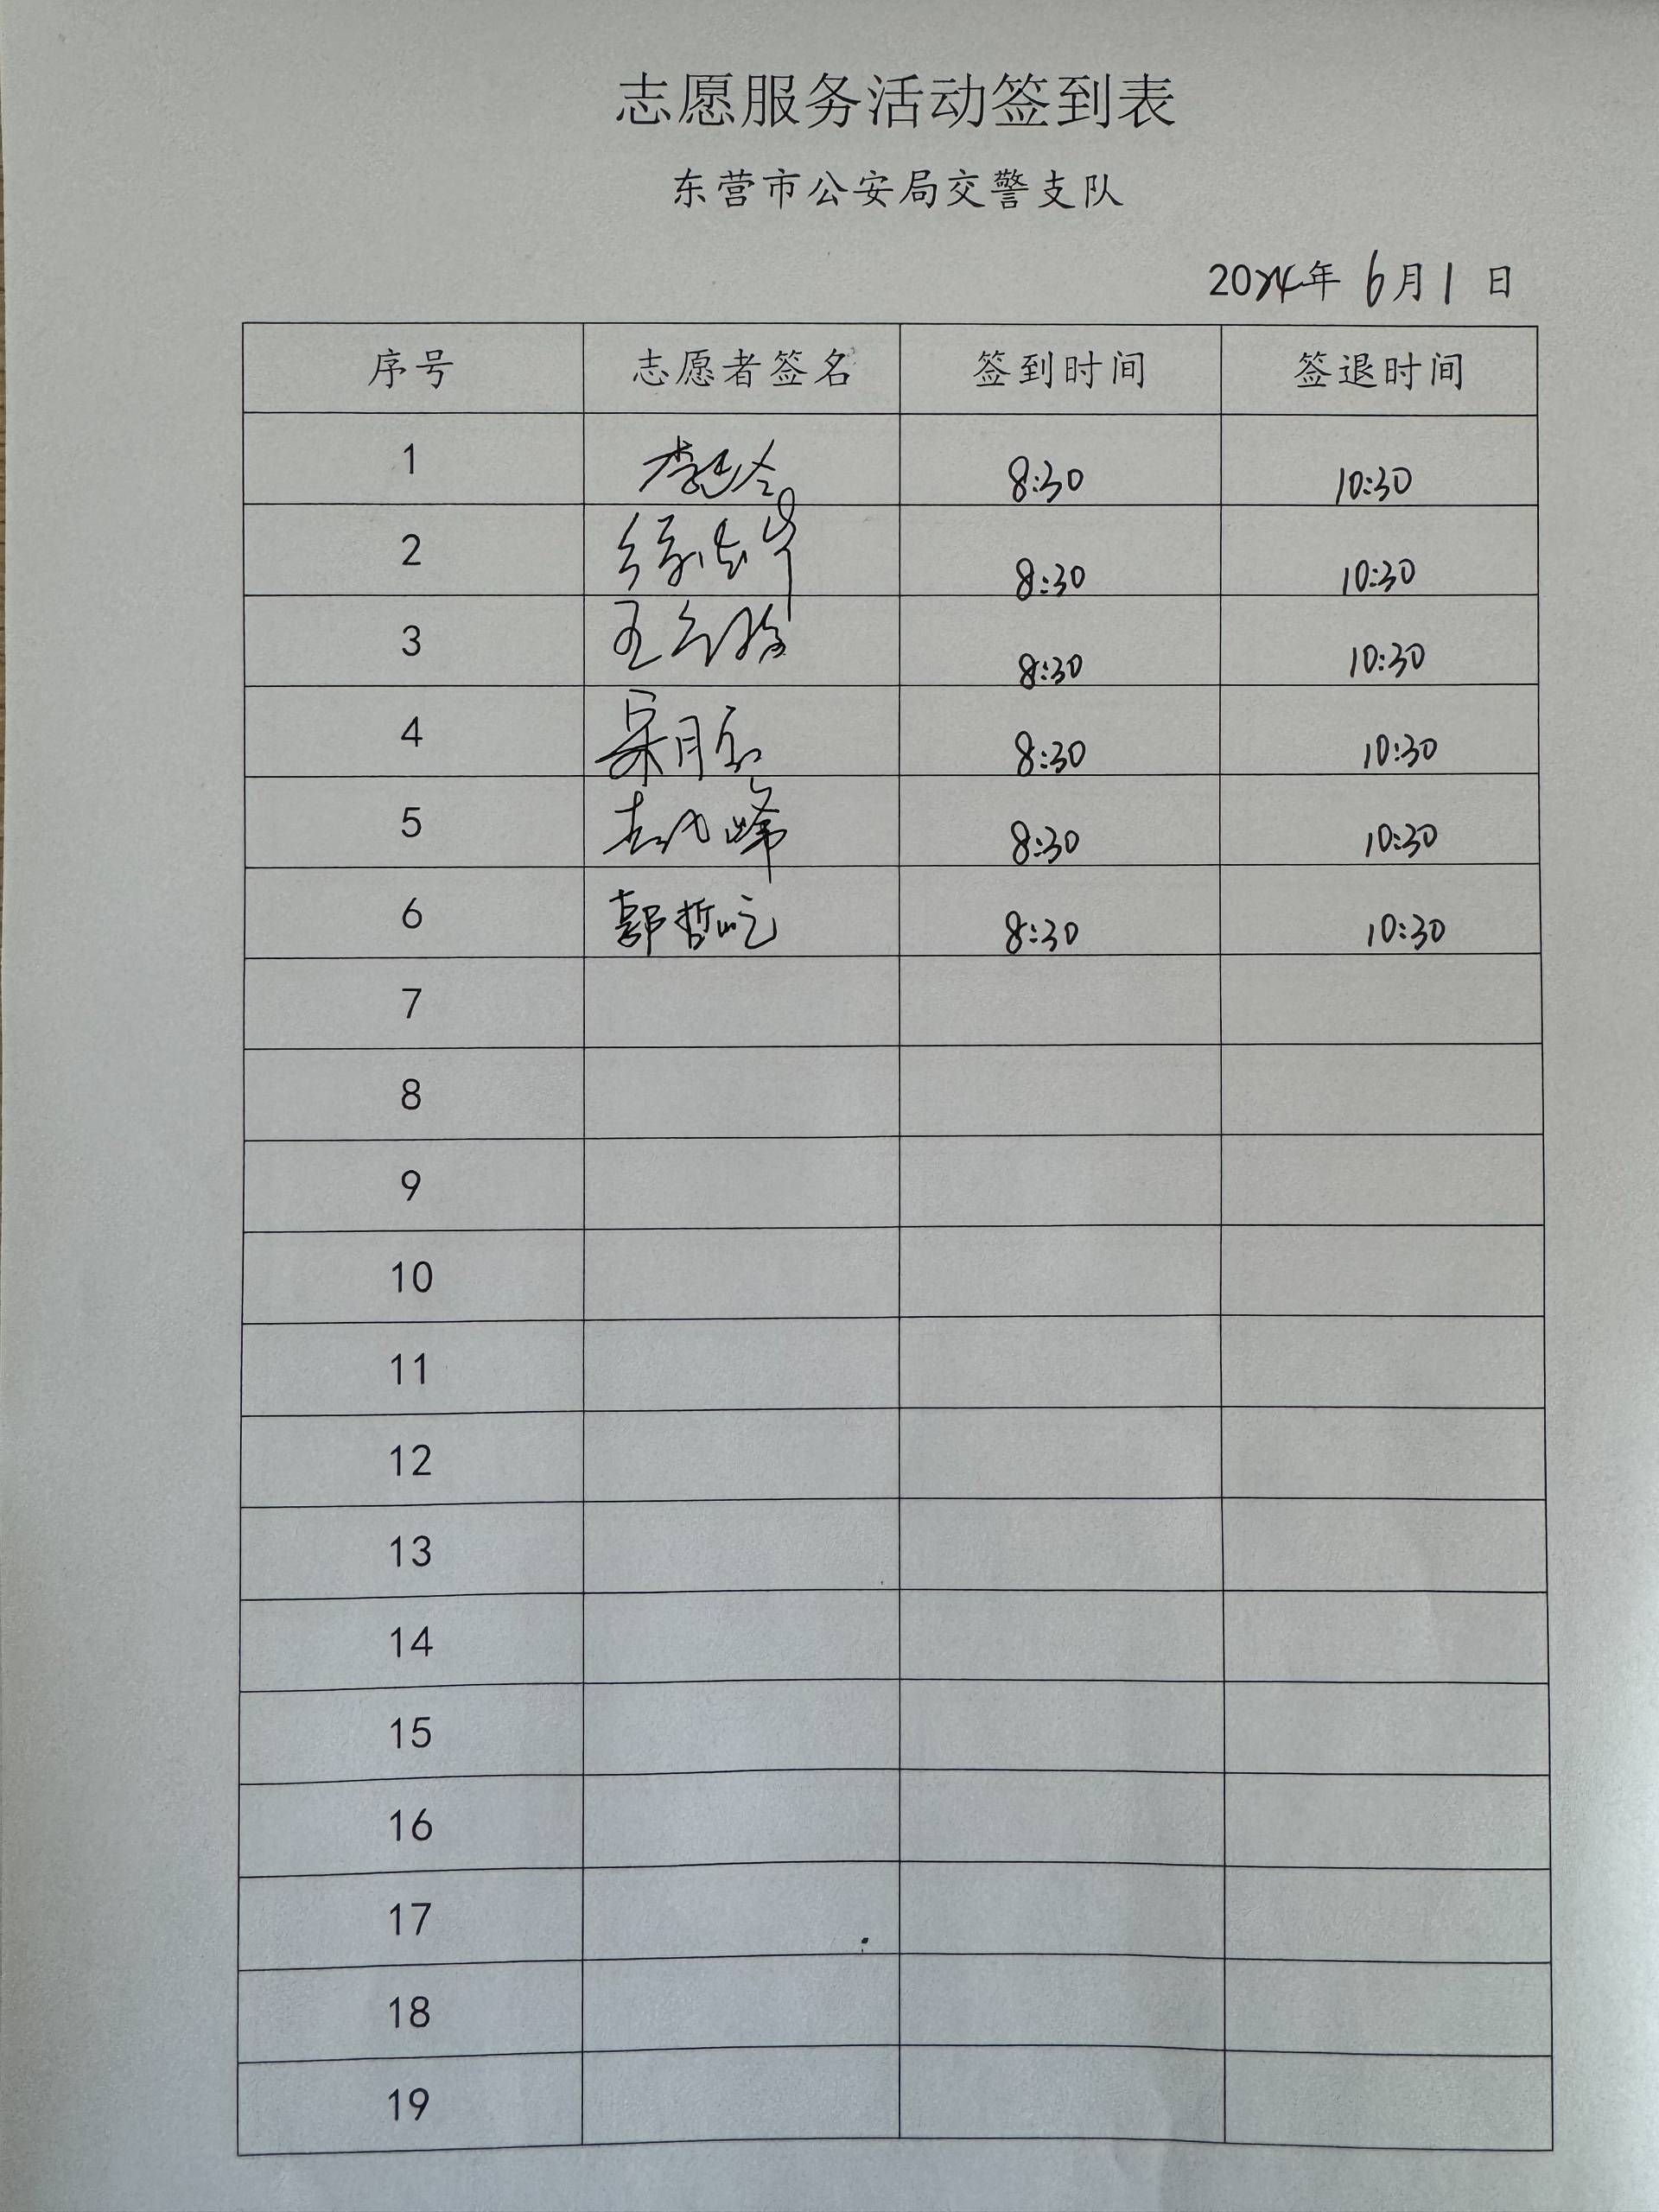 志愿服务活动签到表
东营市公安局交警支队
2024年 6月1日
序号 志愿者签名 签到时间 签退时间
1 8:30 10:30
2 8:30 10:30
3 王 8:30 10:30
4 宋月 8:30 10:30
5 峰 8:30 10:30
6 郭哲屹 8:30 10:30
7
8
9
10
11
12
13
14
15
16
17
18
19